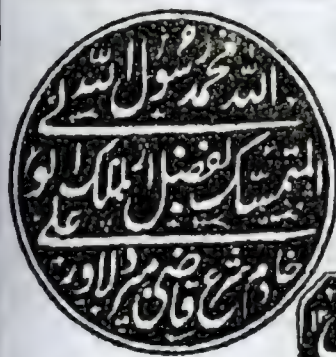 الله محمد رسول الله
المتمسک بفضل الملک الولی
خادم شرع قاضی میر دلاور علی